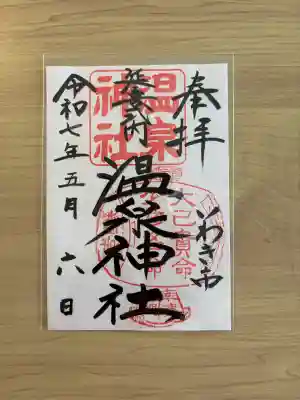 奉拝
いわき市
延喜式内
温泉神社
令和七年五月六日
温泉
神社
大己貴命